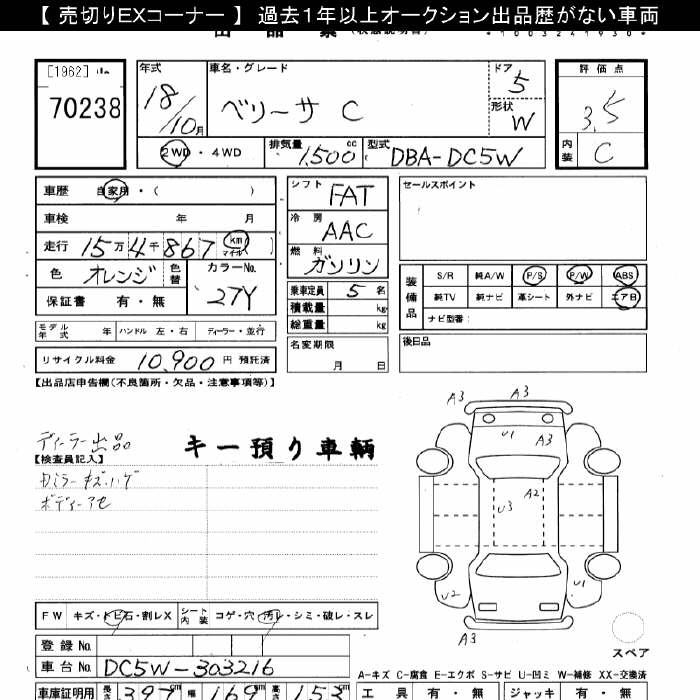 【 売切りEXコーナー 】 過去1年以上オークション出品歴がない車両
[1962]
70238
年式
18/10月
車名・グレード
ベリーサ C
ドア
5
形状
W
評価点
3.5
内装
C
2WD・4WD
排気量
1,500cc
型式
DBA-DC5W
車歴 自家用・( )
車検 年 月
走行 15万4千867 km マイル )
色 オレンジ 色替
カラーNo.
27Y
保証書 有・無
モデル年式 年 ハンドル 左・右 ディーラー・並行
リサイクル料金 10,900円 預託済
シフト
FAT
冷房
AAC
燃料
ガソリン
乗車定員 5名
積載量 kg
総重量 kg
名変期限
月 日
セールスポイント
装備品
S/R 純A/W P/S P/W ABS
純TV 純ナビ 革シート 外ナビ エアB
ナビ型番:
後日品
【出品店申告欄(不良箇所・欠品・注意事項等)】
ディーラー出品
キー預り車輌
【検査員記入】
カミラー キズ、ハゲ
ボディーアセ
A3
A3
A3
U1
A3
A2
U3
U2
U1
A3
スペア
FW キズ・トビ石・割レX シート内装 コゲ・穴 汚レ・シミ・破レ・スレ
登録No.
車台No. DC5W-303216
A-キズ C-腐食 E-エクボ S-サビ U-凹ミ W-補修 XX-交換済
車庫証明用 長さ 397cm 幅 169cm 高さ 153cm
工具 有・無 ジャッキ 有・無